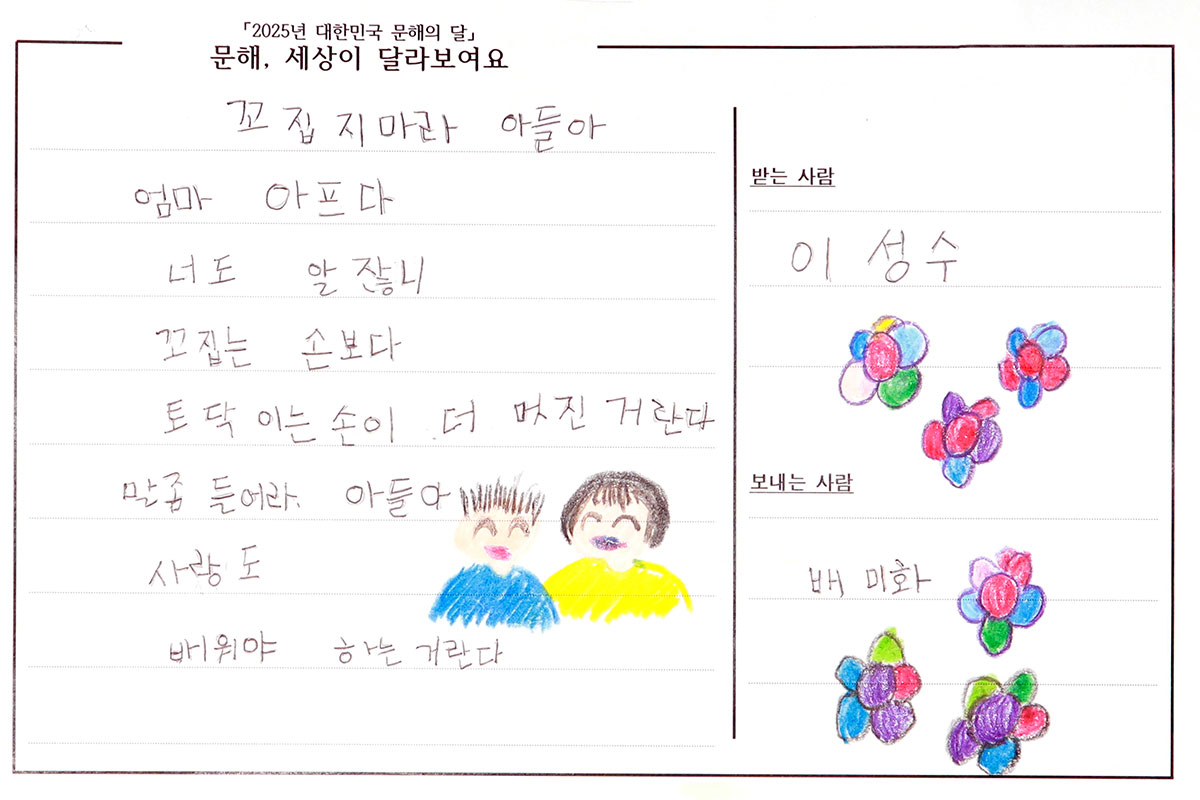 「2025년 대한민국 문해의 달」
문해, 세상이 달라보여요
꼬집지마라 아들아
엄마 아프다
너도 알잖니
꼬집는 손보다
토닥이는 손이 더 멋진 거란다
말좀 들어라. 아들아
사랑도
배워야 하는 거란다
받는 사람
이성수
보내는 사람
배미화